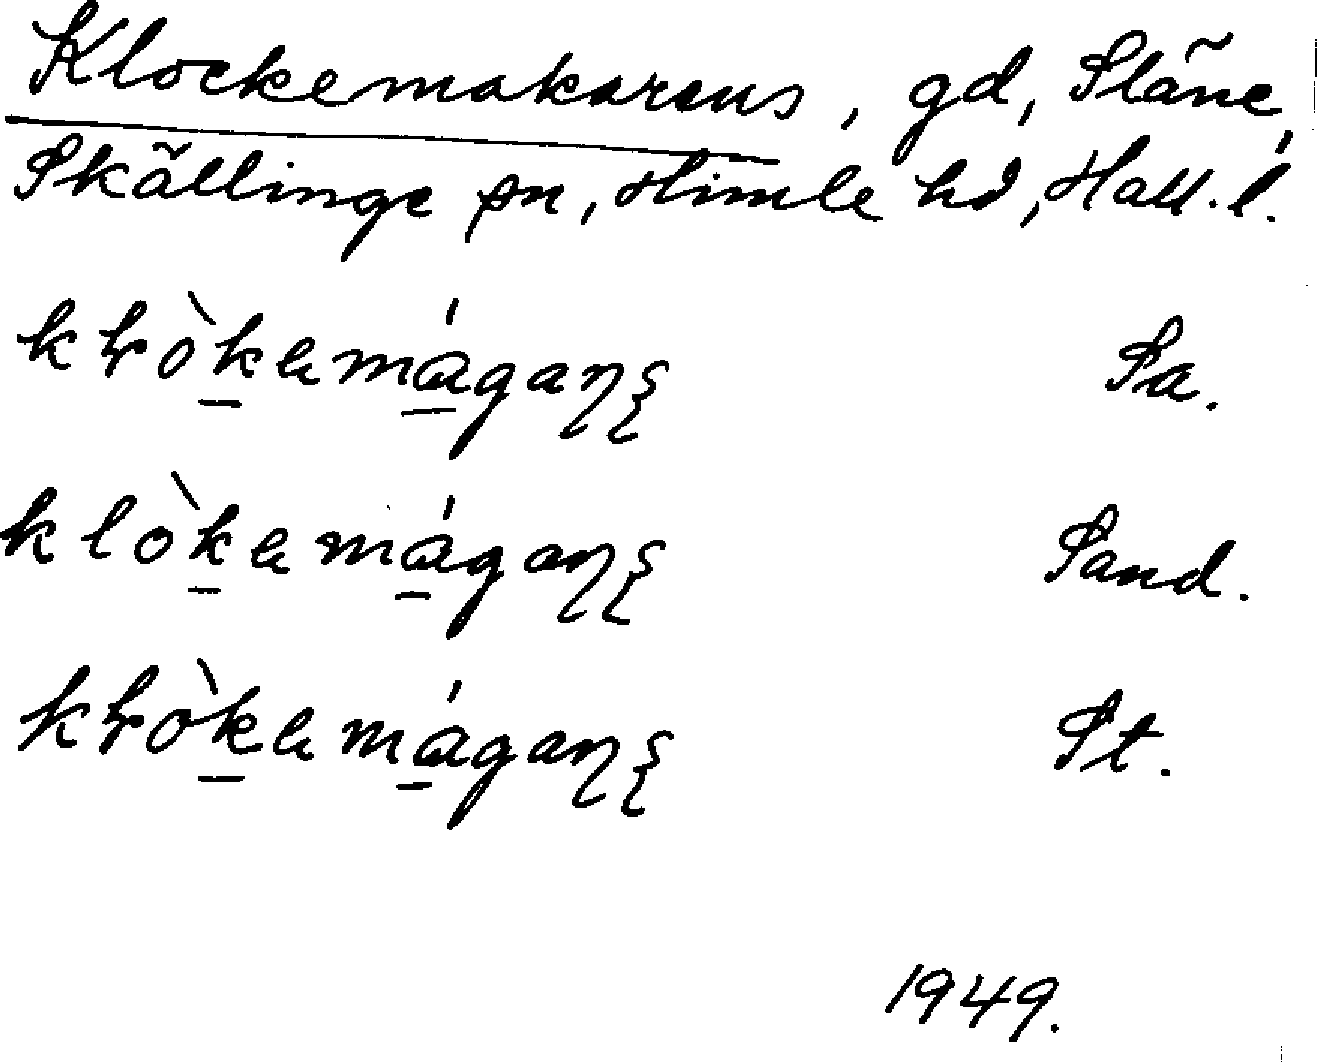 Klockemakarens, gd, Släne,
Skällinge sn, Himle hd, Hall. l.
kƚòkɐmágaŋʂ Sa.
klòkɐmágaŋʂ Sand.
kƚòkɐmágaŋʂ St.
1949.